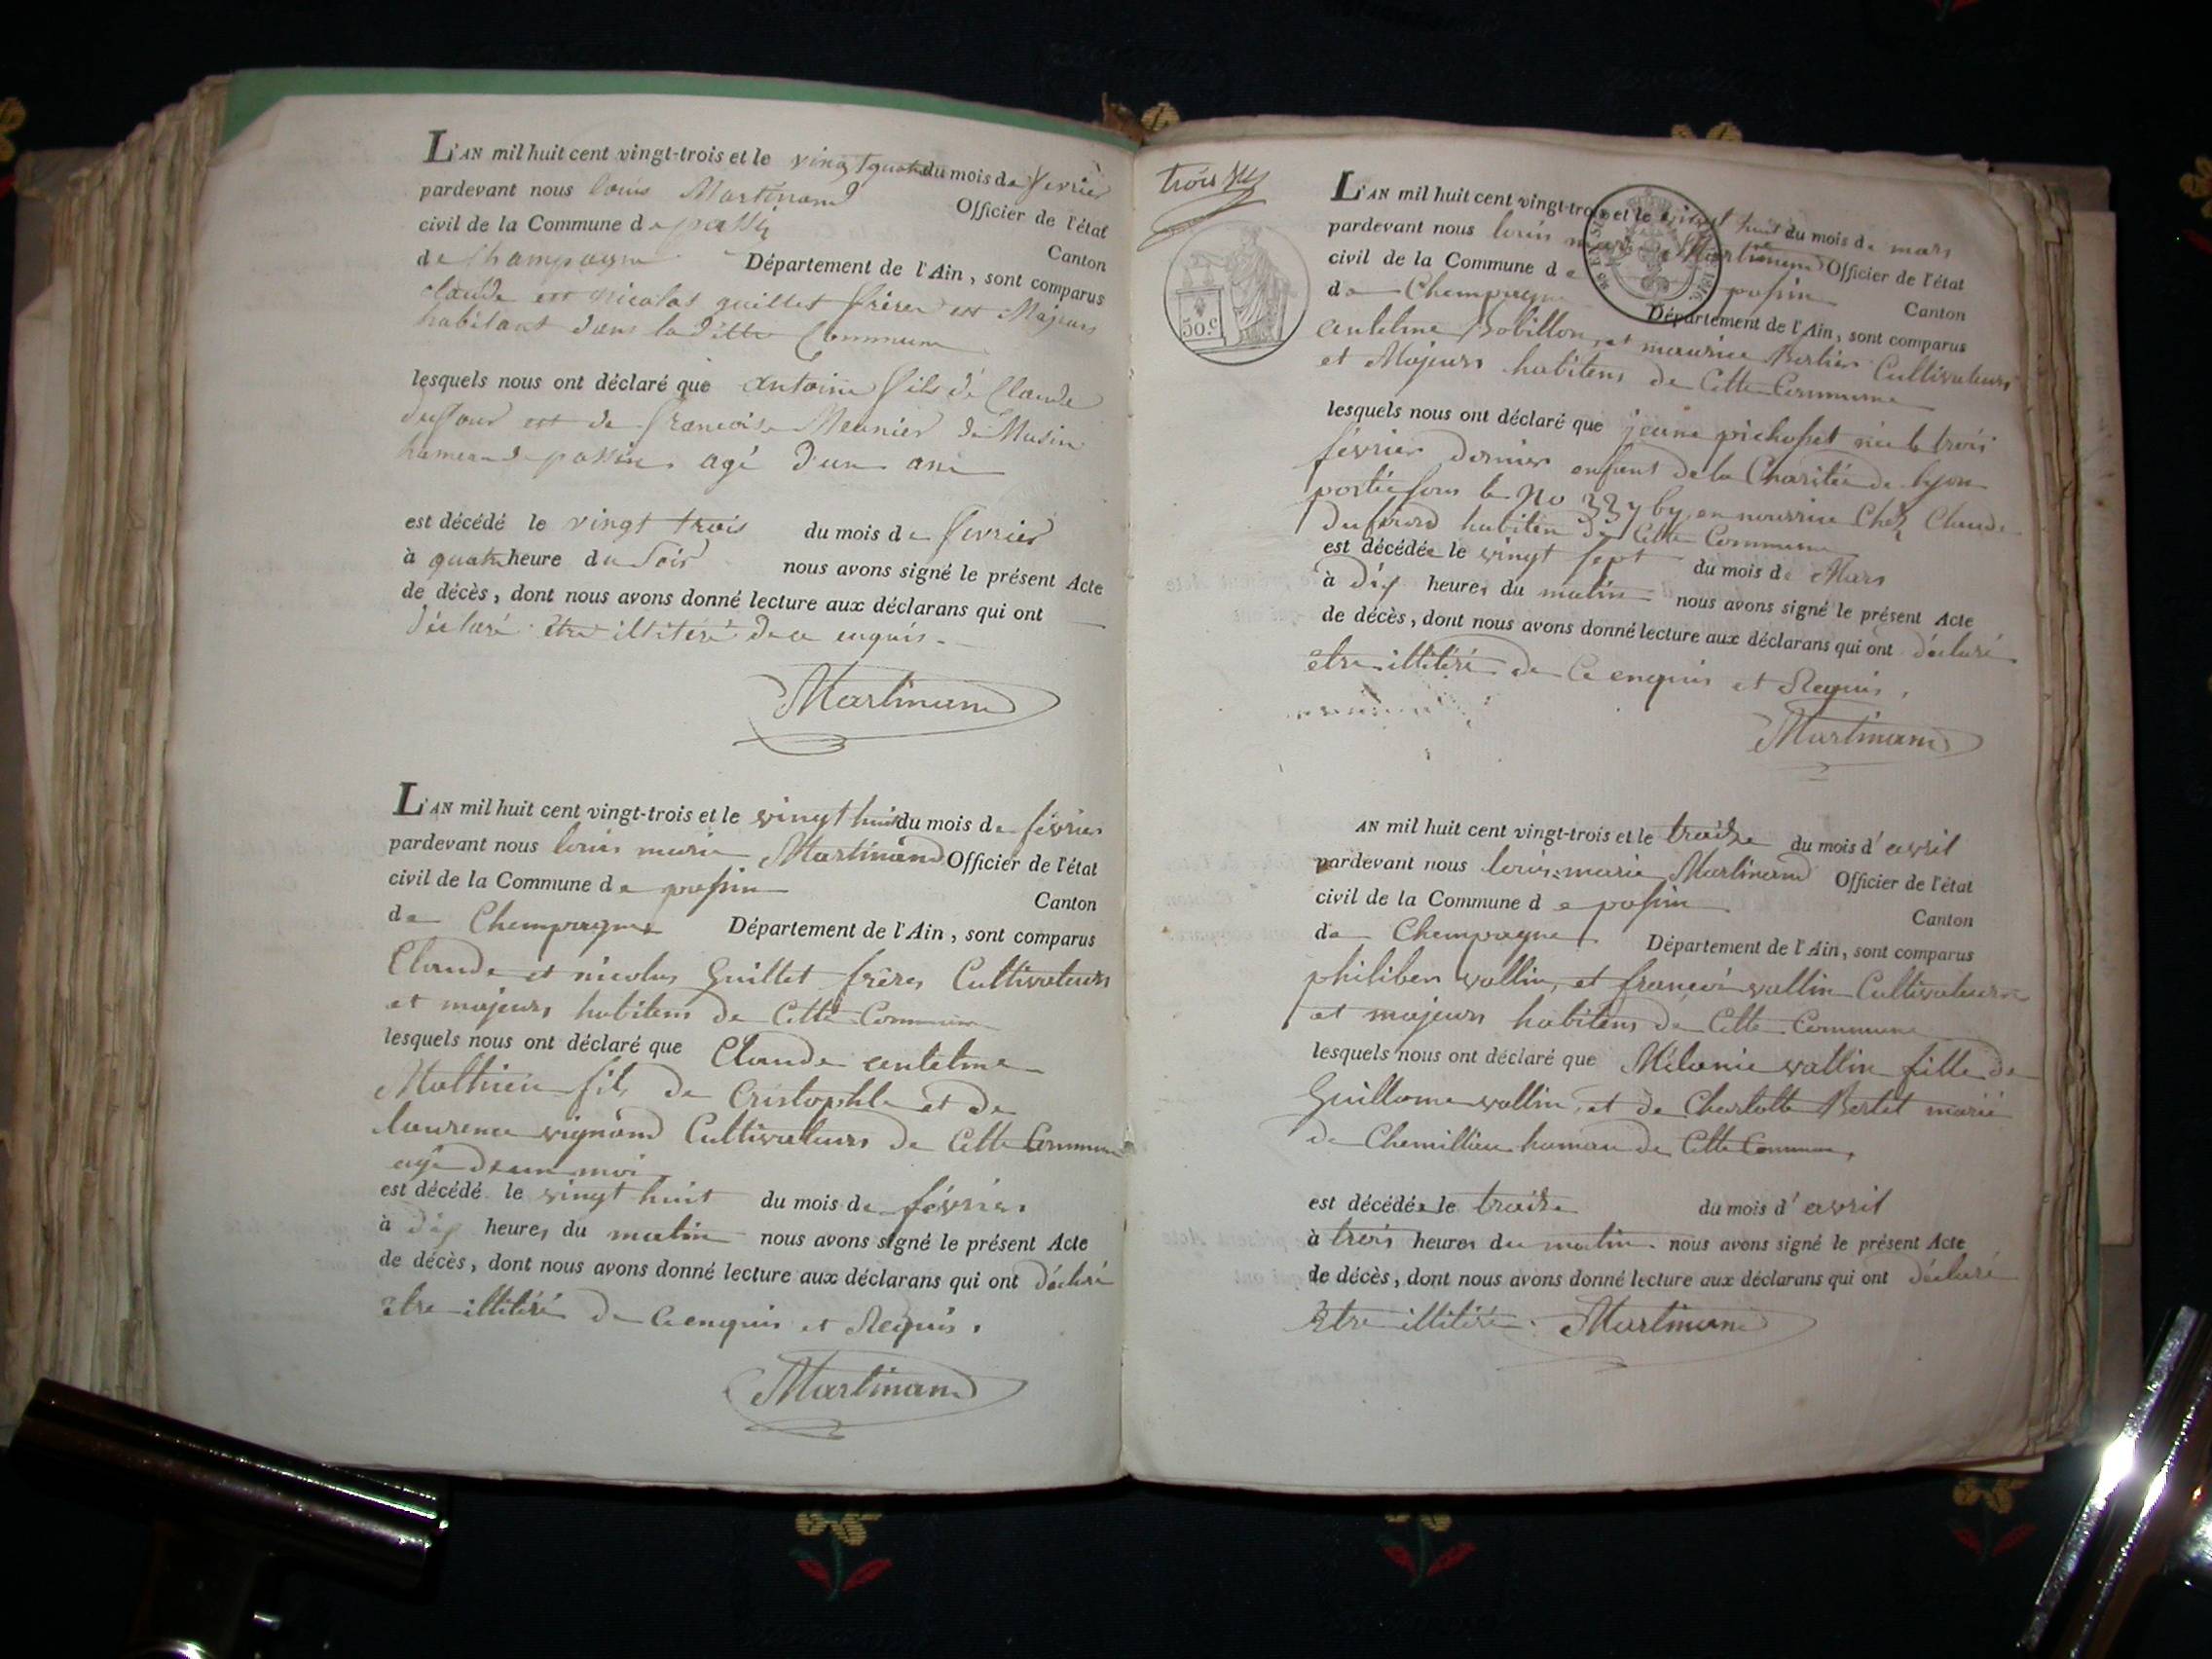 L'AN mil huit cent vingt-trois et le vingt quatre du mois de fevrier
pardevant nous louis Martinand Officier de l'état
civil de la Commune de passin Canton
de Champagne Département de l'Ain, sont comparus
claude et nicolas guillet frères et Majeurs
habitant dans la ditte Commune
lesquels nous ont déclaré que Antoine fils de Claude
dufour et de francoise Meunier de Musin
hameau de passin agé d'un an
est décédé le vingt trois du mois de fevrier
à quatre heure du Soir nous avons signé le présent Acte
de décès, dont nous avons donné lecture aux déclarans qui ont
déclaré être illitéré de ce enquis.
Martinand
L'AN mil huit cent vingt-trois et le vingt huit du mois de février
pardevant nous louis marie Martinand Officier de l'état
civil de la Commune de passin
Canton
de Champagne Département de l'Ain, sont comparus
Claude et nicolas Guillet frères Cultivateurs
et majeurs habitens de Cette Commune
lesquels nous ont déclaré que Claude antelme
Mathieu fils de Cristophle et de
laurence vignand Cultivateurs de Cette Commune
agé de un moi
est décédé le vingt huit du mois de février
à dix heures du matin nous avons signé le présent Acte
de décès, dont nous avons donné lecture aux déclarans qui ont déclaré
etre illitéré de Ce enquis et Requis.
Martinand
trois
30.c
L'AN mil huit cent vingt-trois et le vingt huit du mois de mars
pardevant nous louis marie Martinand Officier de l'état
civil de la Commune de passin
Canton
de Champagne Département de l'Ain, sont comparus
antelme Bobillon et maurice Bertier Cultivateurs
et Majeurs habitens de Cette Commune
lesquels nous ont déclaré que jeane née le trois
février dernier enfent de la Charitée de lyon
portée sous le No en nourrice Chez Claude
habiten de Cette Commune
est décédée le vingt sept du mois de Mars
à dix heures du matin nous avons signé le présent Acte
de décès, dont nous avons donné lecture aux déclarans qui ont déclaré
etre illitéré de Ce enquis et Requis.
Martinand
AN mil huit cent vingt-trois et le treize du mois d'avril
pardevant nous louis marie Martinand Officier de l'état
civil de la Commune de passin
Canton
de Champagne Département de l'Ain, sont comparus
philiber vallin, et françois vallin Cultivateurs
et majeurs habitens de Cette Commune
lesquels nous ont déclaré que Mélanie vallin fille de
Guillome vallin, et de Charlotte Bertet marié
de Chemillieu hamau de Cette Commune,
est décédée le treize du mois d'avril
à trois heures du matin nous avons signé le présent Acte
de décès, dont nous avons donné lecture aux déclarans qui ont déclaré
Etre illitéré. Martinand